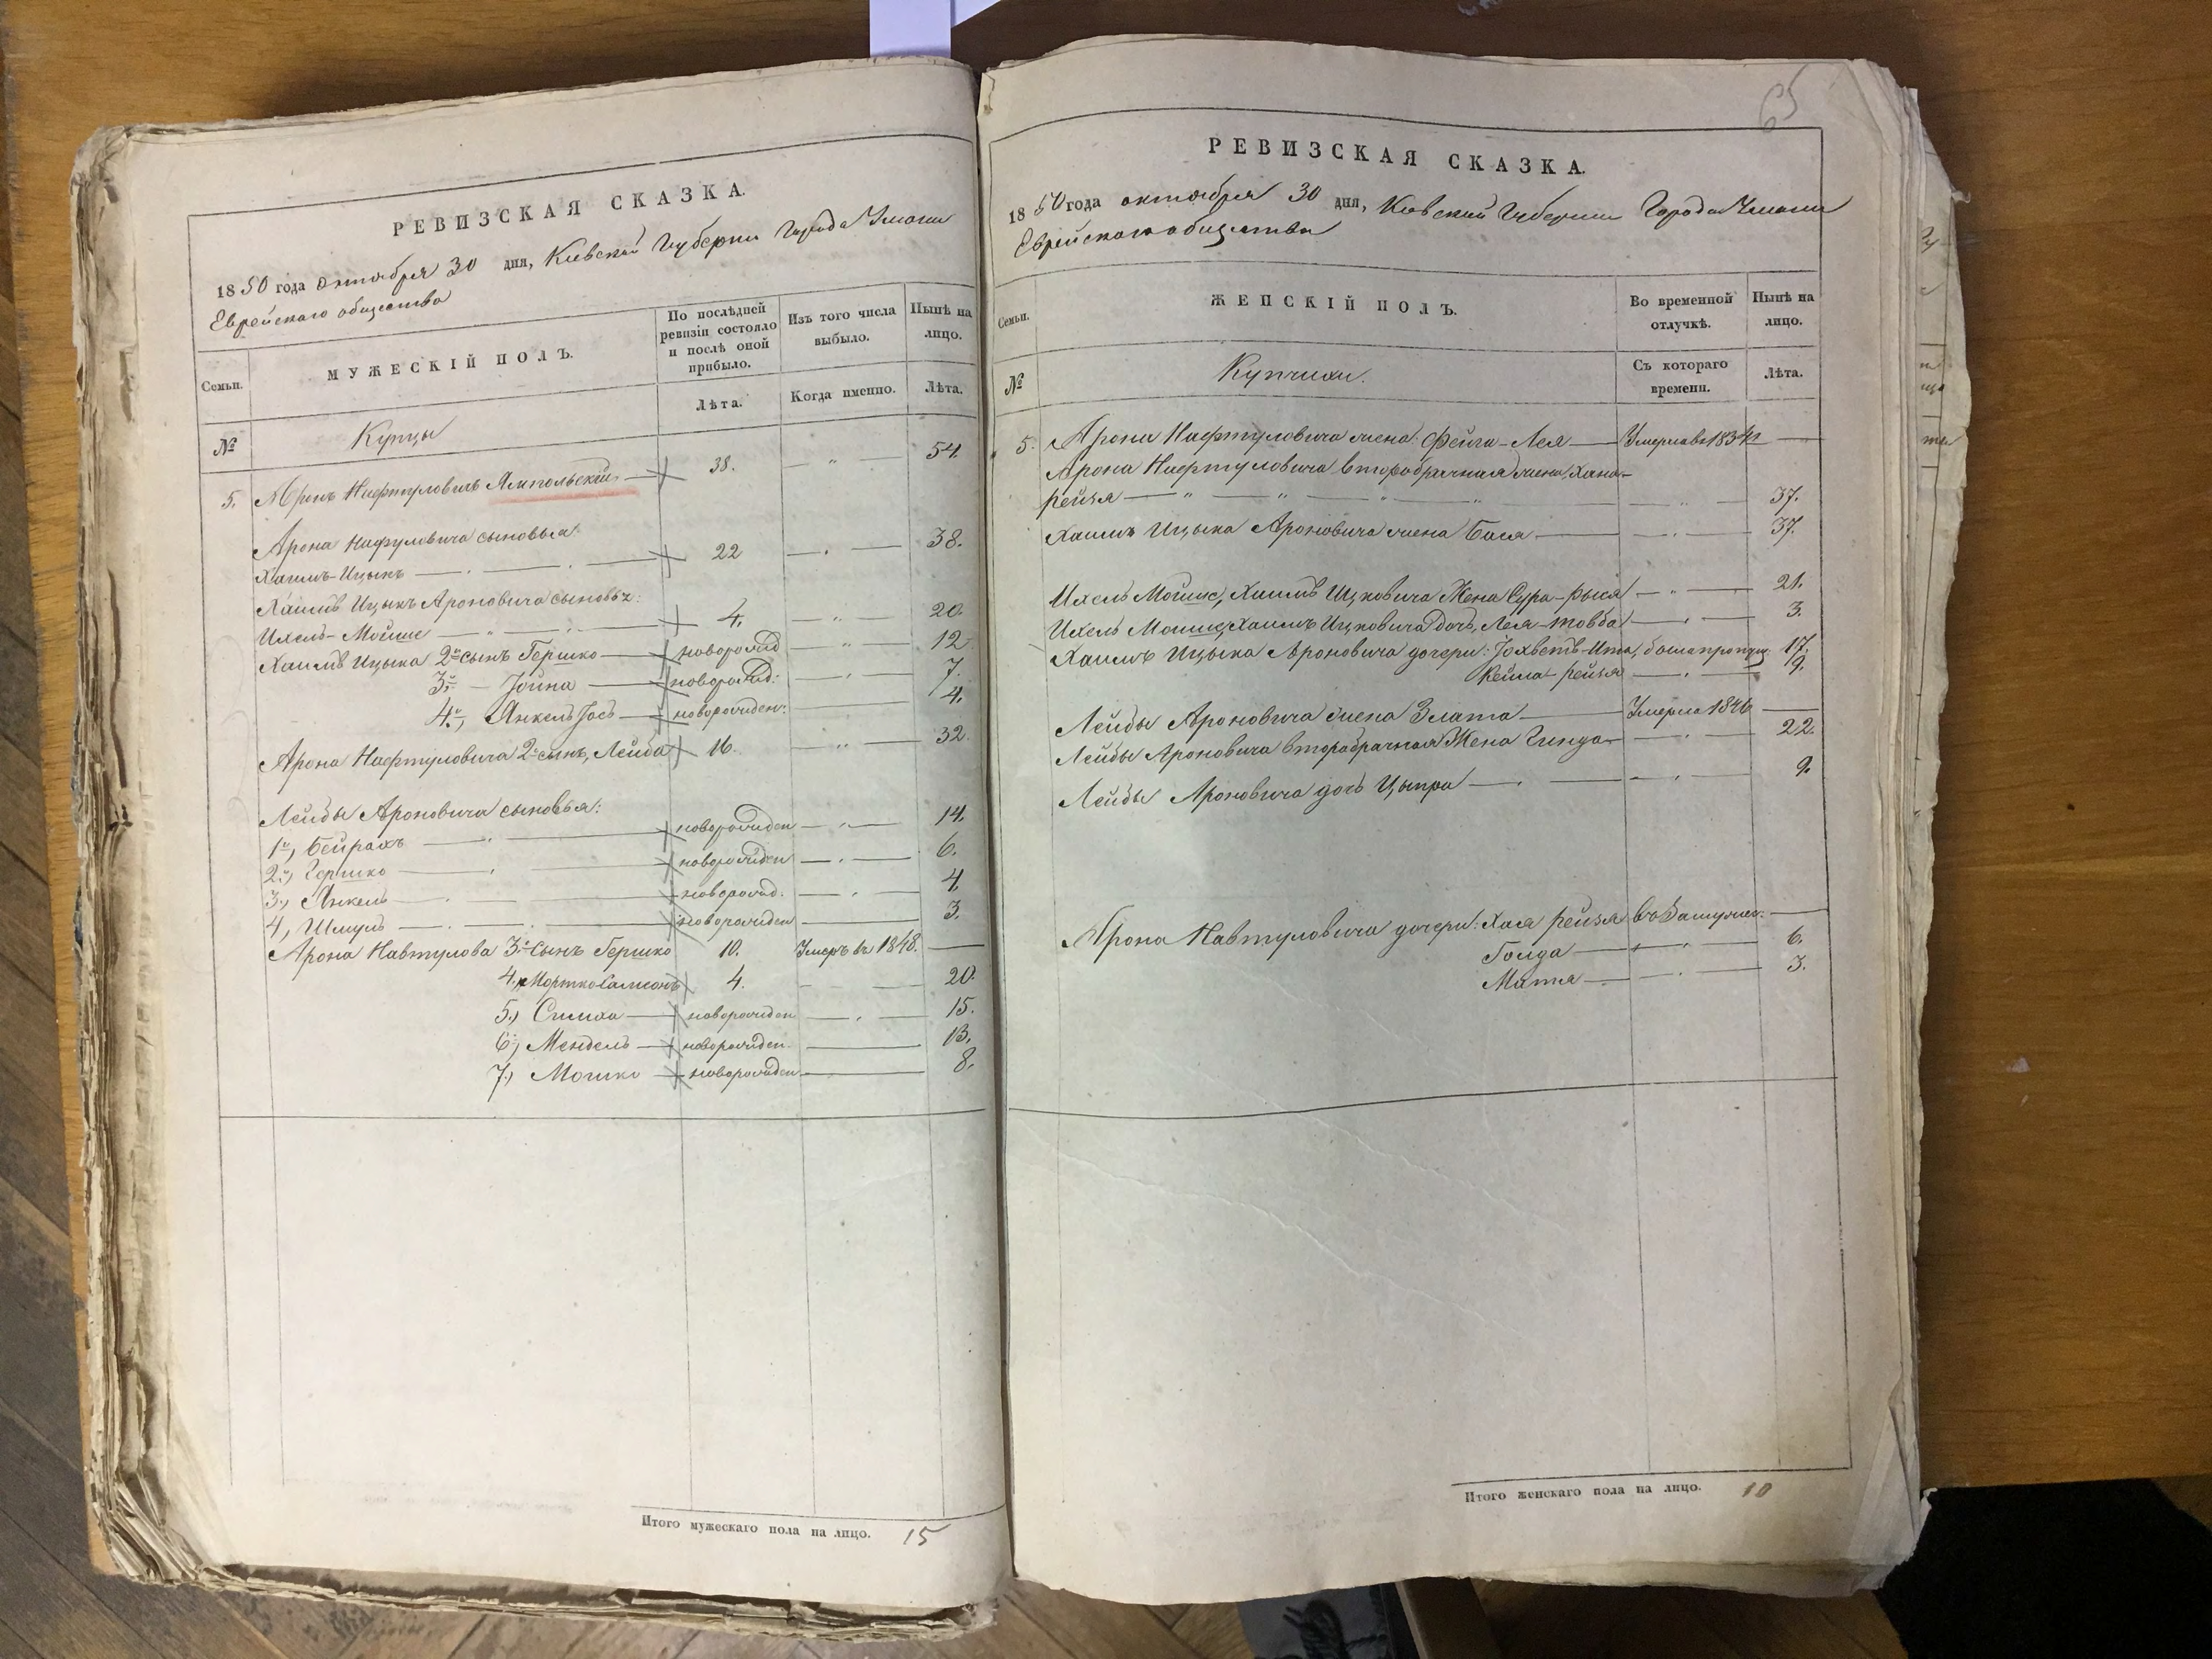 РЕВИЗСКАЯ СКАЗКА.
1850 года октября 30 дня, Киевской Губернии Города Умани
Еврейскаго общества
Семьи.
МУЖЕСКІЙ ПОЛЪ.
По послѣдней ревизіи состояло и послѣ оной прибыло.
Изъ того числа выбыло.
Нынѣ на лицо.
Лѣта.
Когда именно.
Лѣта.
№
Купцы
5. Аронъ Нафтуловичъ Ямпольскій 38. — " — 54.
Арона Нафтуловича сыновья:
Хаимъ-Ицыкъ 22 — " — 38.
Хаимъ Ицыкъ Ароновича сыновья:
Ихель-Мойше 4. — " — 20.
Хаимъ Ицыка 2й сынъ Гершко новорожд — " — 12.
3й — Іойна новорожд: — " — 7.
4й, Янкель Іось новорожден: 4.
Арона Нафтуловича 2й сынъ, Лейба 16. — " — 32.
Лейбы Ароновича сыновья:
1й, Бейрахъ новорожден — " — 14.
2й, Гершко новорожден — " — 6.
3, Янкель новорожд. — " — 4.
4, Шмуль новорожден 3.
Арона Навтулова 3й сынъ Гершко 10. Умеръ въ 1848. —
4, Мортко Самсонъ 4. — — — 20.
5, Симха новорожден — " — 15.
6, Мендель новорожден. 13.
7, Мошко новорожден 8.
Итого мужескаго пола на лицо. 15
65
РЕВИЗСКАЯ СКАЗКА.
1850 года октября 30 дня, Киевской Губернии Города Умани
Еврейскаго общества
Семьи.
ЖЕНСКІЙ ПОЛЪ.
Во временной отлучкѣ.
Нынѣ на лицо.
№
Купчихи.
Съ котораго времени.
Лѣта.
5. Арона Нафтуловича жена Фейга-Лея — Умерла въ 1834 —
Арона Нафтуловича второбрачная жена, Хана-
Рейзя — " — " — " — 37.
Хаимъ Ицыка Ароновича жена Бася — " — 37.
Ихель Мойше, Хаимъ Ицковича Жена Сура-Рыся — " — 21.
Ихель Мойше, Хаимъ Ицковича дочь, Лея-Товба — " — 3.
Хаимъ Ицыка Ароновича дочери: Іохветъ-Ита, 17.
Рейзя — " — 9.
Лейбы Ароновича жена Злата — Умерла 1846 —
Лейбы Ароновича второбрачная Жена Гинда — " — 22.
Лейбы Ароновича дочь Ципра — " — 9.
Арона Навтуловича дочери: Хая Рейзя въ Замужест. —
Голда — " — 6.
Матя — " — 3.
Итого женскаго пола на лицо. 10